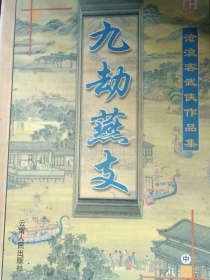 沧浪客武侠作品集
九劫燕支
云南人民出版社
中